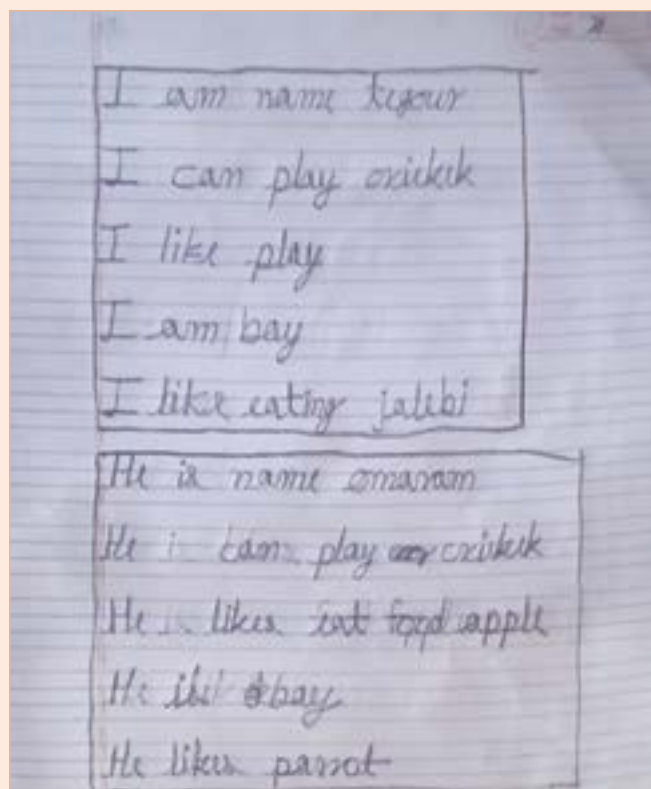 I am name keyour
I can play crickek
I like play
I am bay
I like eating jalebi
He is name omaram
He can play crickek
He likes eat food apple
He is bay
He likes parrot